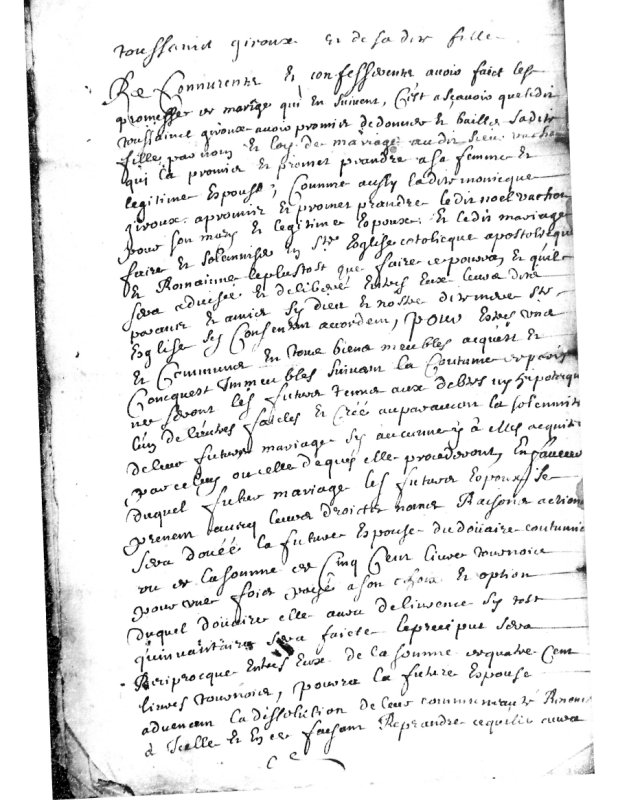 toussainct giroux et de sa dite fille
Recongnurent et confesserent avoir faict les
promesses de mariage qui en suivent, C'est asçavoir que ledit
toussainct giroux avoir promis de donner et bailler sadite
fille par nom et loy de mariage audit sieur vachon
qui la promis et promet prandre a sa femme et
legitime Espouse, Comme aussy ladite monicque
giroux a promis et promet prandre ledit noel vachon
pour son mary et legitime Espoux. Et ledit mariage
faire et solenniser en ste Eglise catolicque apostolicque
et Romainne le plustost que faire ce pourra et quil
sera advisé et deliberé Entres Eux leurs dits
parans et amis sy dieu et nostre dite mere ste
Eglise sy Consentent accordent, pour Estres uns
et Communs En tous biens meubles acquest et
Conquest Immeubles suivant la Coutume de paris
ne seront les futurs tenus aux debtes ny hipotecques
lun de lautres faictes et Créé auparavant la solemnité
de leur futur mariage sy aucunes y a elles acquitée
par celuy ou celle de qui elle procederont, En faveur
duquel futur mariage les futurs Espoux se
prenent aussy leurs droicts noms Raisons actions
sera douéé la future Espouse du douaire coutumier
ou de la somme de Cinq Cent livres tournois
pour une fois payé a son choix et option
duquel douaire elle aura delivrence sy tost
quinvantaire sera faicte le preciput sera
Reciprocque Entres Eux de la somme de quatre Cent
livres tournois, pourra la future Espouse
advenant la dissolution de leur communauté Renoncé
à Icelle et En ce faisant Reprandre ce quelle aura